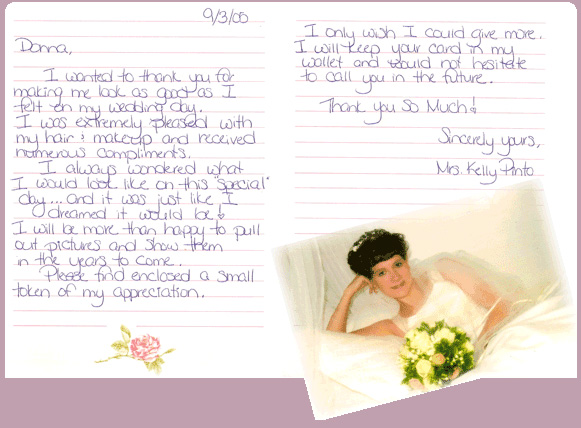 9/3/00
Donna,
I wanted to thank you for
making me look as good as I
felt on my wedding day.
I was extremely pleased with
my hair & makeup and received
numerous compliments.
I always wondered what
I would look like on this "special"
day... and it was just like I
dreamed it would be!
I will be more than happy to pull
out pictures and show them
in the years to come.
Please find enclosed a small
token of my appreciation.
I only wish I could give more.
I will keep your card in my
wallet and would not hesitate
to call you in the future.
Thank you So Much!
Sincerely yours,
Mrs. Kelly Pinto